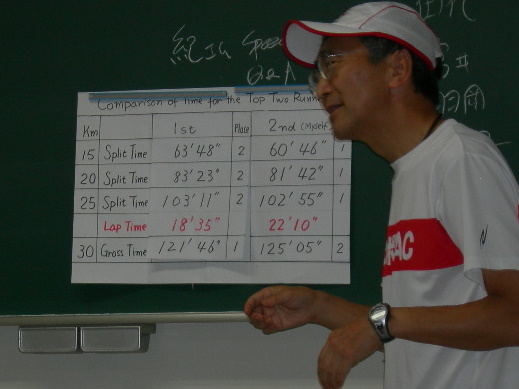 Speech
Q&A
Comparison of Time for the Top Two Runne
Km 1st Place 2nd (Myself)
15 Split Time 63'48" 2 60'46" 1
20 Split Time 83'23" 2 81'42" 1
25 Split Time 103'11" 2 102'55" 1
Lap Time 18'35" 22'10"
30 Gross Time 121'46" 1 125'05" 2